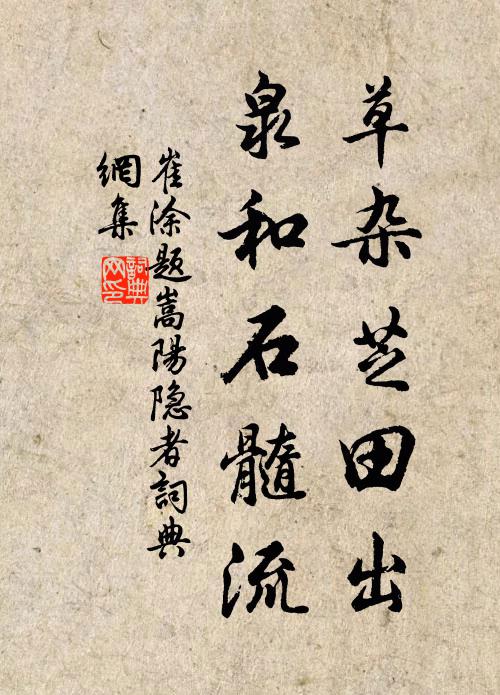 草杂芝田出
泉和石髓流
崔涂题嵩陽隐者詞典
網集
詞典
网印